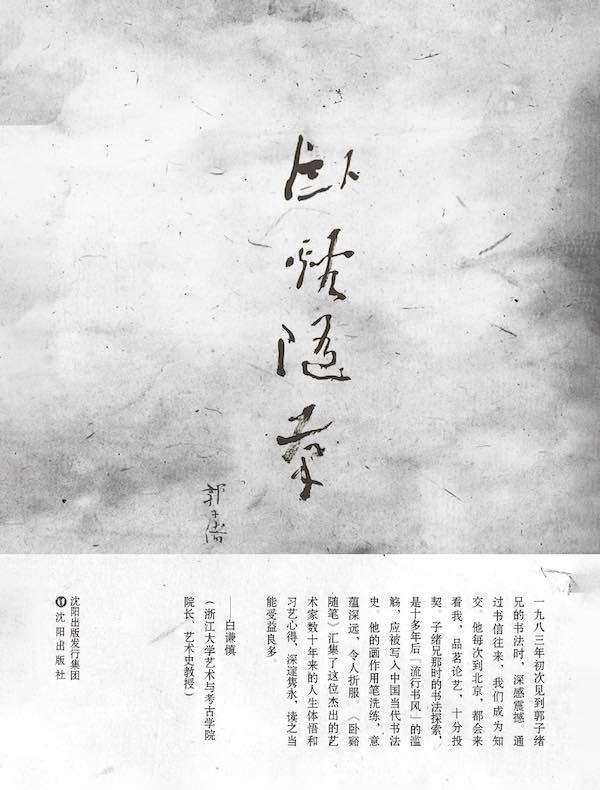 臥谿隨筆
郭子绪
一九八三年初次见到郭子绪
兄的书法时，深感震撼。通
过书信往来，我们成为知
交。他每次到北京，都会来
看我，品茗论艺，十分投
契。子绪兄那时的书法探索，
是十多年后「流行书风」的滥
觞，应被写入中国当代书法
史。他的画作用笔洗练、意
蕴深远，令人折服。〈卧谿
随笔〉汇集了这位杰出的艺
术家数十年来的人生体悟和
习艺心得，深邃隽永，读之当
能受益良多。
——白谦慎
（浙江大学艺术与考古学院
院长、艺术史教授）
沈阳出版发行集团
沈阳出版社